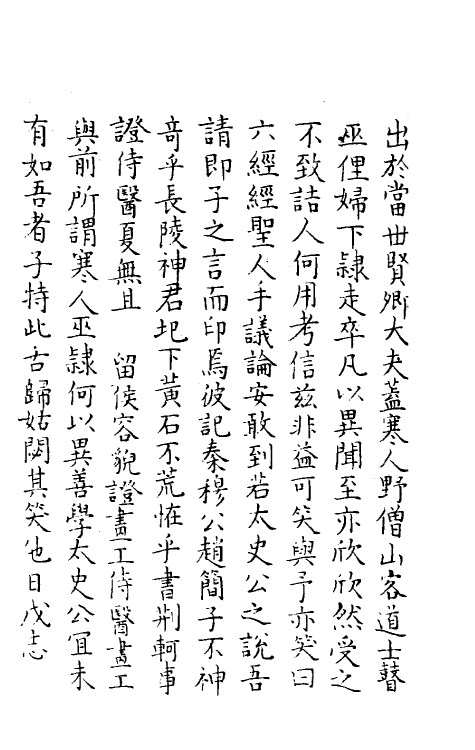 出於當世賢卿大夫蓋寒人野僧山客道士瞽
巫俚婦下隷走卒凡以異聞至亦欣欣然受之
不致詰人何用考信兹非益可笑與予亦笑曰
六經經聖人手議論安敢到若太史公之說吾
請即子之言而印焉彼記秦穆公趙簡子不神
竒乎長陵神君圯下黃石不荒恠乎書荆軻事
證侍醫夏無且 留侯容貌證畫工侍醫畫工
與前所謂寒人巫隷何以異善學太史公宜未
有如吾者子持此舌歸姑閟其笑他日戊志